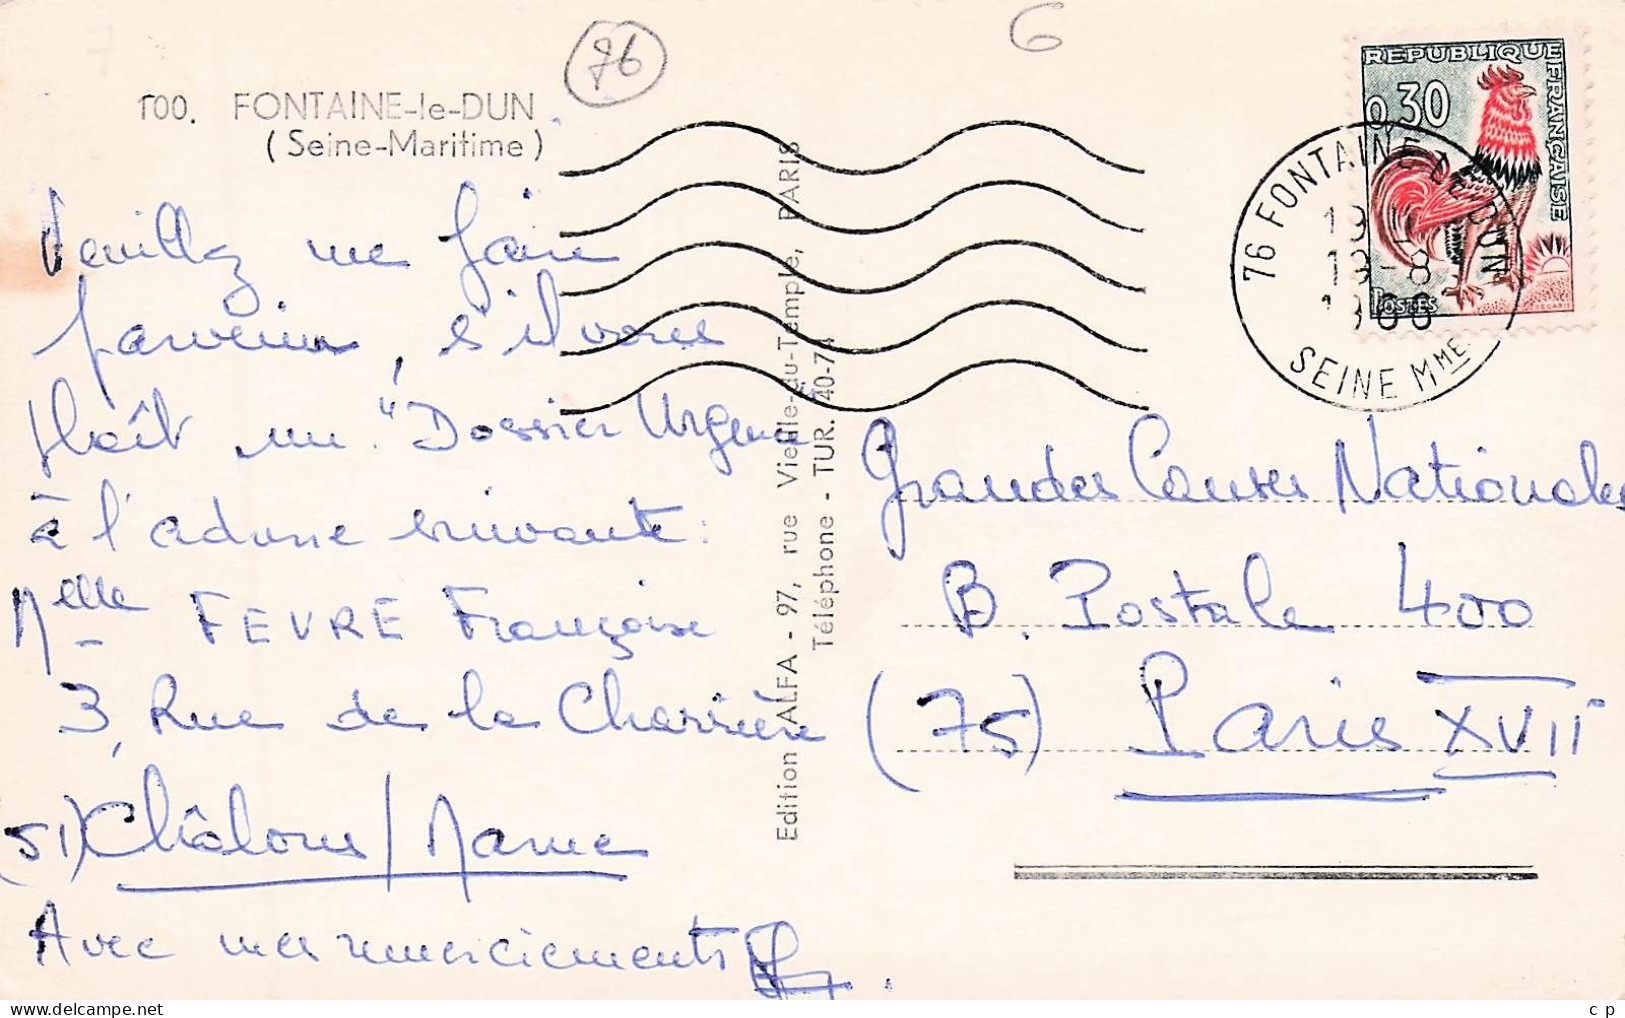 76
6
100. FONTAINE-le-DUN
(Seine-Maritime)
Veuillez me faire
parvenir, s'il vous
plaît un "Dossier Urgence"
à l'adresse suivante :
Melle FEVRE Françoise
3, Rue de la Charrière
(51) Châlons/Marne
Avec mes remerciements
Edition ALFA - 97, rue Vieille-du-Temple, PARIS
Téléphone - TUR. 40-74
REPUBLIQUE FRANÇAISE
0,30
POSTES
76 FONTAINE LE DUN
18-8
SEINE MME
Grandes Causes Nationales
B. Postale 400
(75) Paris XVII
c p